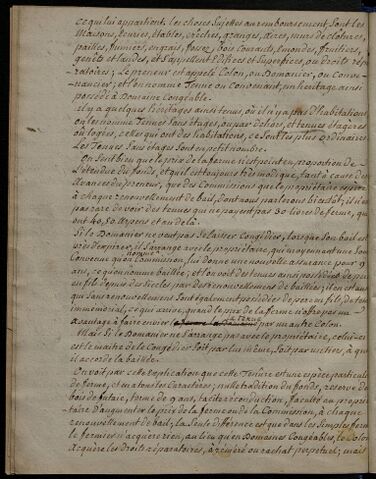 ce qui lui appartient. les choses Sujettes au remboursement Sont les
Maisons, Ecuries, étables, crêches, granges, aires, murs de clotures,
pailles, fumiers, engrais, fossez, bois Courants, Emondes, genetiers,
genêts et landes, et S'appellent Edifices et Superfices, ou droits répa-
ratoires; Le preneur est appelé Colon, ou Domanier, ou Conve-
nancier; et l'on nomme Tenue ou Convenant, un heritage ainsi
possédé à Domaine Congeable.
il y a quelques heritages ainsi tenus, où il n'y a pas d'habitations
on les nomme Tenues Sans étages, ou par Eschers, et tenues étagères
ou logées, celles qui ont des habitations, ce Sont les plus ordinaires
les Tenues Sans étages Sont en petit nombre.
On Sent bien que le prix de la ferme n'est point en proportion de
l'étendue du fonds, et qu'il est toujours très modique, tant à cause des
avances du preneur, que des Commissions que le propriétaire espere
à chaque renouvellement de bail, dont nous parlerons bientôt; il n'est
pas rare de voir des tenues qui ne payent pas 30 livres de ferme, qui
ont 40, 50 arpens et au dela.
Si le Domanier ne veut pas Se laisser Congédier, lorsque Son bail est
près d'expirer, il S'arrange avec le propriétaire, qui moyennant une Somme
Convenue qu'on nomme Commission, lui donne une nouvelle assurance pour 9
ans, ce qu'on nomme baillée; et l'on voit des tenues ainsi possédées de père
en fils depuis des Siecles par des renouvellements de baillées; il en est
qui Sans renouvellement Sont également possédées de père en fils, de tems
immemorial, ce qui arrive, quand le prix de la ferme n'offre pas un
avantage à faire Suivre la Tenue par un autre Colon.
Mais Si le Domanier ne S'arrange pas avec le propriétaire, celui-ci
est le maitre de le Congédier Soit par lui même, Soit par un tiers, à qui
il accorde la baillée.
On voit par cette explication que cette Tenure est une espèce particuliere
de ferme, elle en a tous les Caractères; nulle tradition du fonds, reserve de
bois de futaie, terme de 9 ans, tacite réconduction, faculté au proprie-
taire d'augmenter le prix de la ferme ou de la Commission, à chaque
renouvellement de bail; la Seule difference est que dans les Simples fermes
le fermier n'acquiere rien, au lieu qu'en Domaines Congéables, le Colon
acquiere les droits réparatoires, à rachat perpetuel; mais